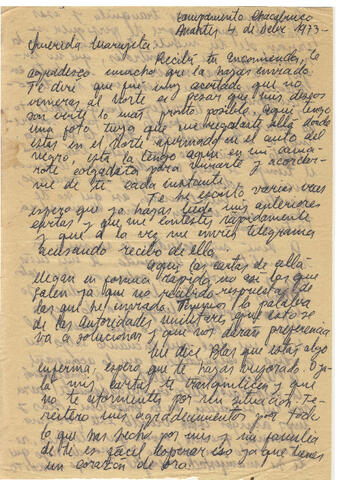 Campamento Chacabuco
4 de Dbre 1973-
Querida Marujita
Recibí tu encomienda, te
agradesco mucho que la hayas enviado
Te diré que fue muy acertado que no
vinieras al norte es pesar que mis deseos
son verte lo mas pronto posible, aquí tengo
una foto tuya que me regalaste allá donde
estás en el Norte afirmada en el auto del
negro, esta la tengo aquí en mi cama-
rote colgadita para mirarte y acordar-
me de ti cada instante.
Te he escrito varias veces
espero que ya hayas leído mis anteriores
cartas y que me contestes rapidamente
y que a la vez me envies telegrama
acusando recibo de ella.
Aquí las cartas de allá
llegan en forma rápida no así las que
salen ya que no he recibido respuestas de
las que he enviado. Tenemos la palabra
de las autoridades militares que esto se
va a solucionar y que nos darán preferencia
Me dice Blas que estás algo
enferma, espero que te hayas mejorado
mis cartas te tranquilicen y que
no te atormentes por mi situación re-
itero mis agradecimientos por todo
lo que has hecho por mi y mi familia
de ti es fácil esperar eso ya que tienes
un corazón de oro.